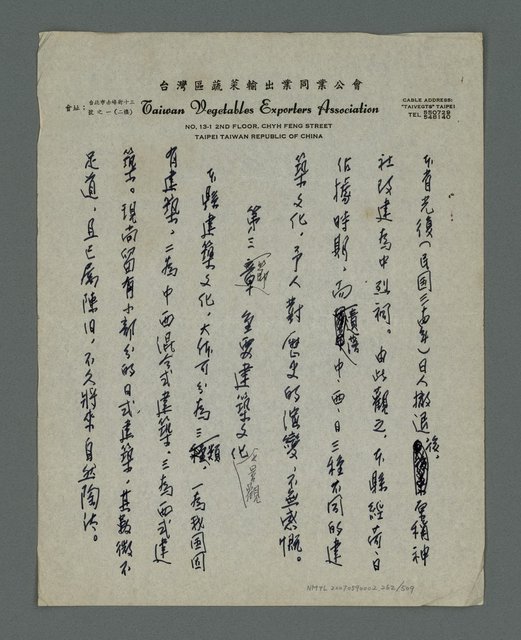 台灣區蔬菜輸出業同業公會
會址：台北市赤峰街十三號之一（二樓）
Taiwan Vegetables Exporters Association
NO. 13-1 2ND FLOOR, CHYH FENG STREET
TAIPEI TAIWAN REPUBLIC OF CHINA
CABLE ADDRESS:
"TAIVEGTS" TAIPEI
TEL 550729
548140
本省光復（民国三十四年）日人撤退後。原精神
社改建為中烈祠。由此觀之，本縣經荷、日
佔據時期，而中、西、日三種不同的建
築文化，予人對歷史的演變，不無感慨。
第三章 重要建築文化
景觀
本縣建築文化，大体可分為三類，一為我国固
有建築。二為中西混合式建築。三為西式建
築。現尚留有小部份的日式建築，其数微不
足道，且已屬陳旧，不久將來自然陶汰。
NMTL 20070590002_262/509